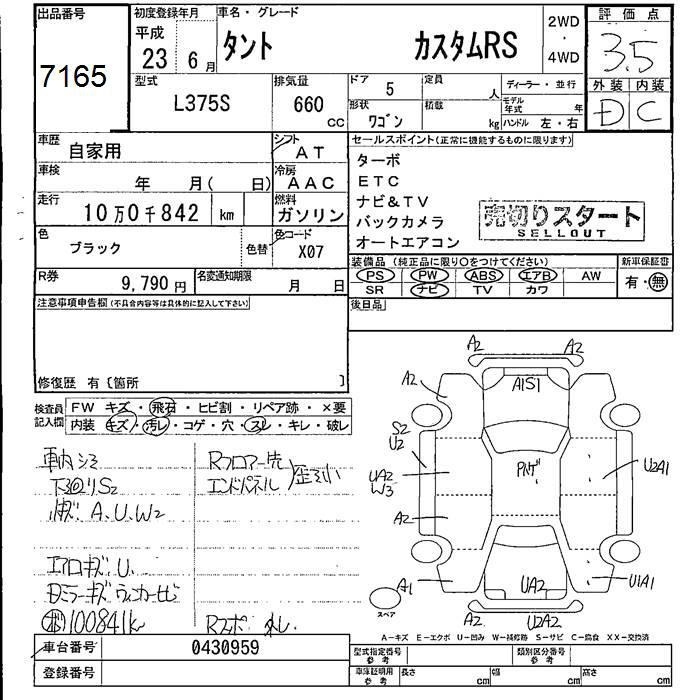 出品番号
7165
初度登録年月
平成
23 6月
車名・グレード
タント カスタムRS
2WD
・
4WD
評価点
3.5
外装 内装
D C
型式
L375S
排気量
660
CC
ドア 5
形状
ワゴン
定員
人
積載
kg
ディーラー・並行
モデル
年式
年
ハンドル 左・右
車歴
自家用
シフト
AT
車検
年 月( 日)
冷房
AAC
走行
10万0千842 km
燃料
ガソリン
色
ブラック
色替
色コード
X07
R券
9,790円
名変通知期限
月 日
セールスポイント(正常に機能するものに限ります)
ターボ
ETC
ナビ&TV
バックカメラ
オートエアコン
売切りスタート
SELLOUT
装備品(純正品に限り○をつけてください)
新車保証書
PS PW ABS エアB AW
SR ナビ TV カワ
有・無
後日品
注意事項申告欄(不具合内容等は具体的に記入して下さい)
修復歴 有〔箇所 〕
検査員
記入欄
FW キズ・飛石・ヒビ割・リペア跡・×要
内装 キズ・汚レ・コゲ・穴・スレ・キレ・破レ
車内シミ
下廻りS2
小キズ A.U.W2
エアロキズU.
Dミラーキズ ウィンカーセビ
100841k
Rフロアー先
エンドパネル
歪 小
Rスポ 外し.
A2 A2
A2 A1S1
S2
U2
UA2
W3
PKズ
U2A1
A2
A1 UA2 U1A1
スペア
A2 U2A2
A—キズ E—エクボ U—凹み W—補修跡 S—サビ C—腐食 XX—交換済
車台番号
0430959
登録番号
型式指定番号
参考
類別区分番号
参考
車庫証明用
参考
長さ cm
幅 cm
高さ cm